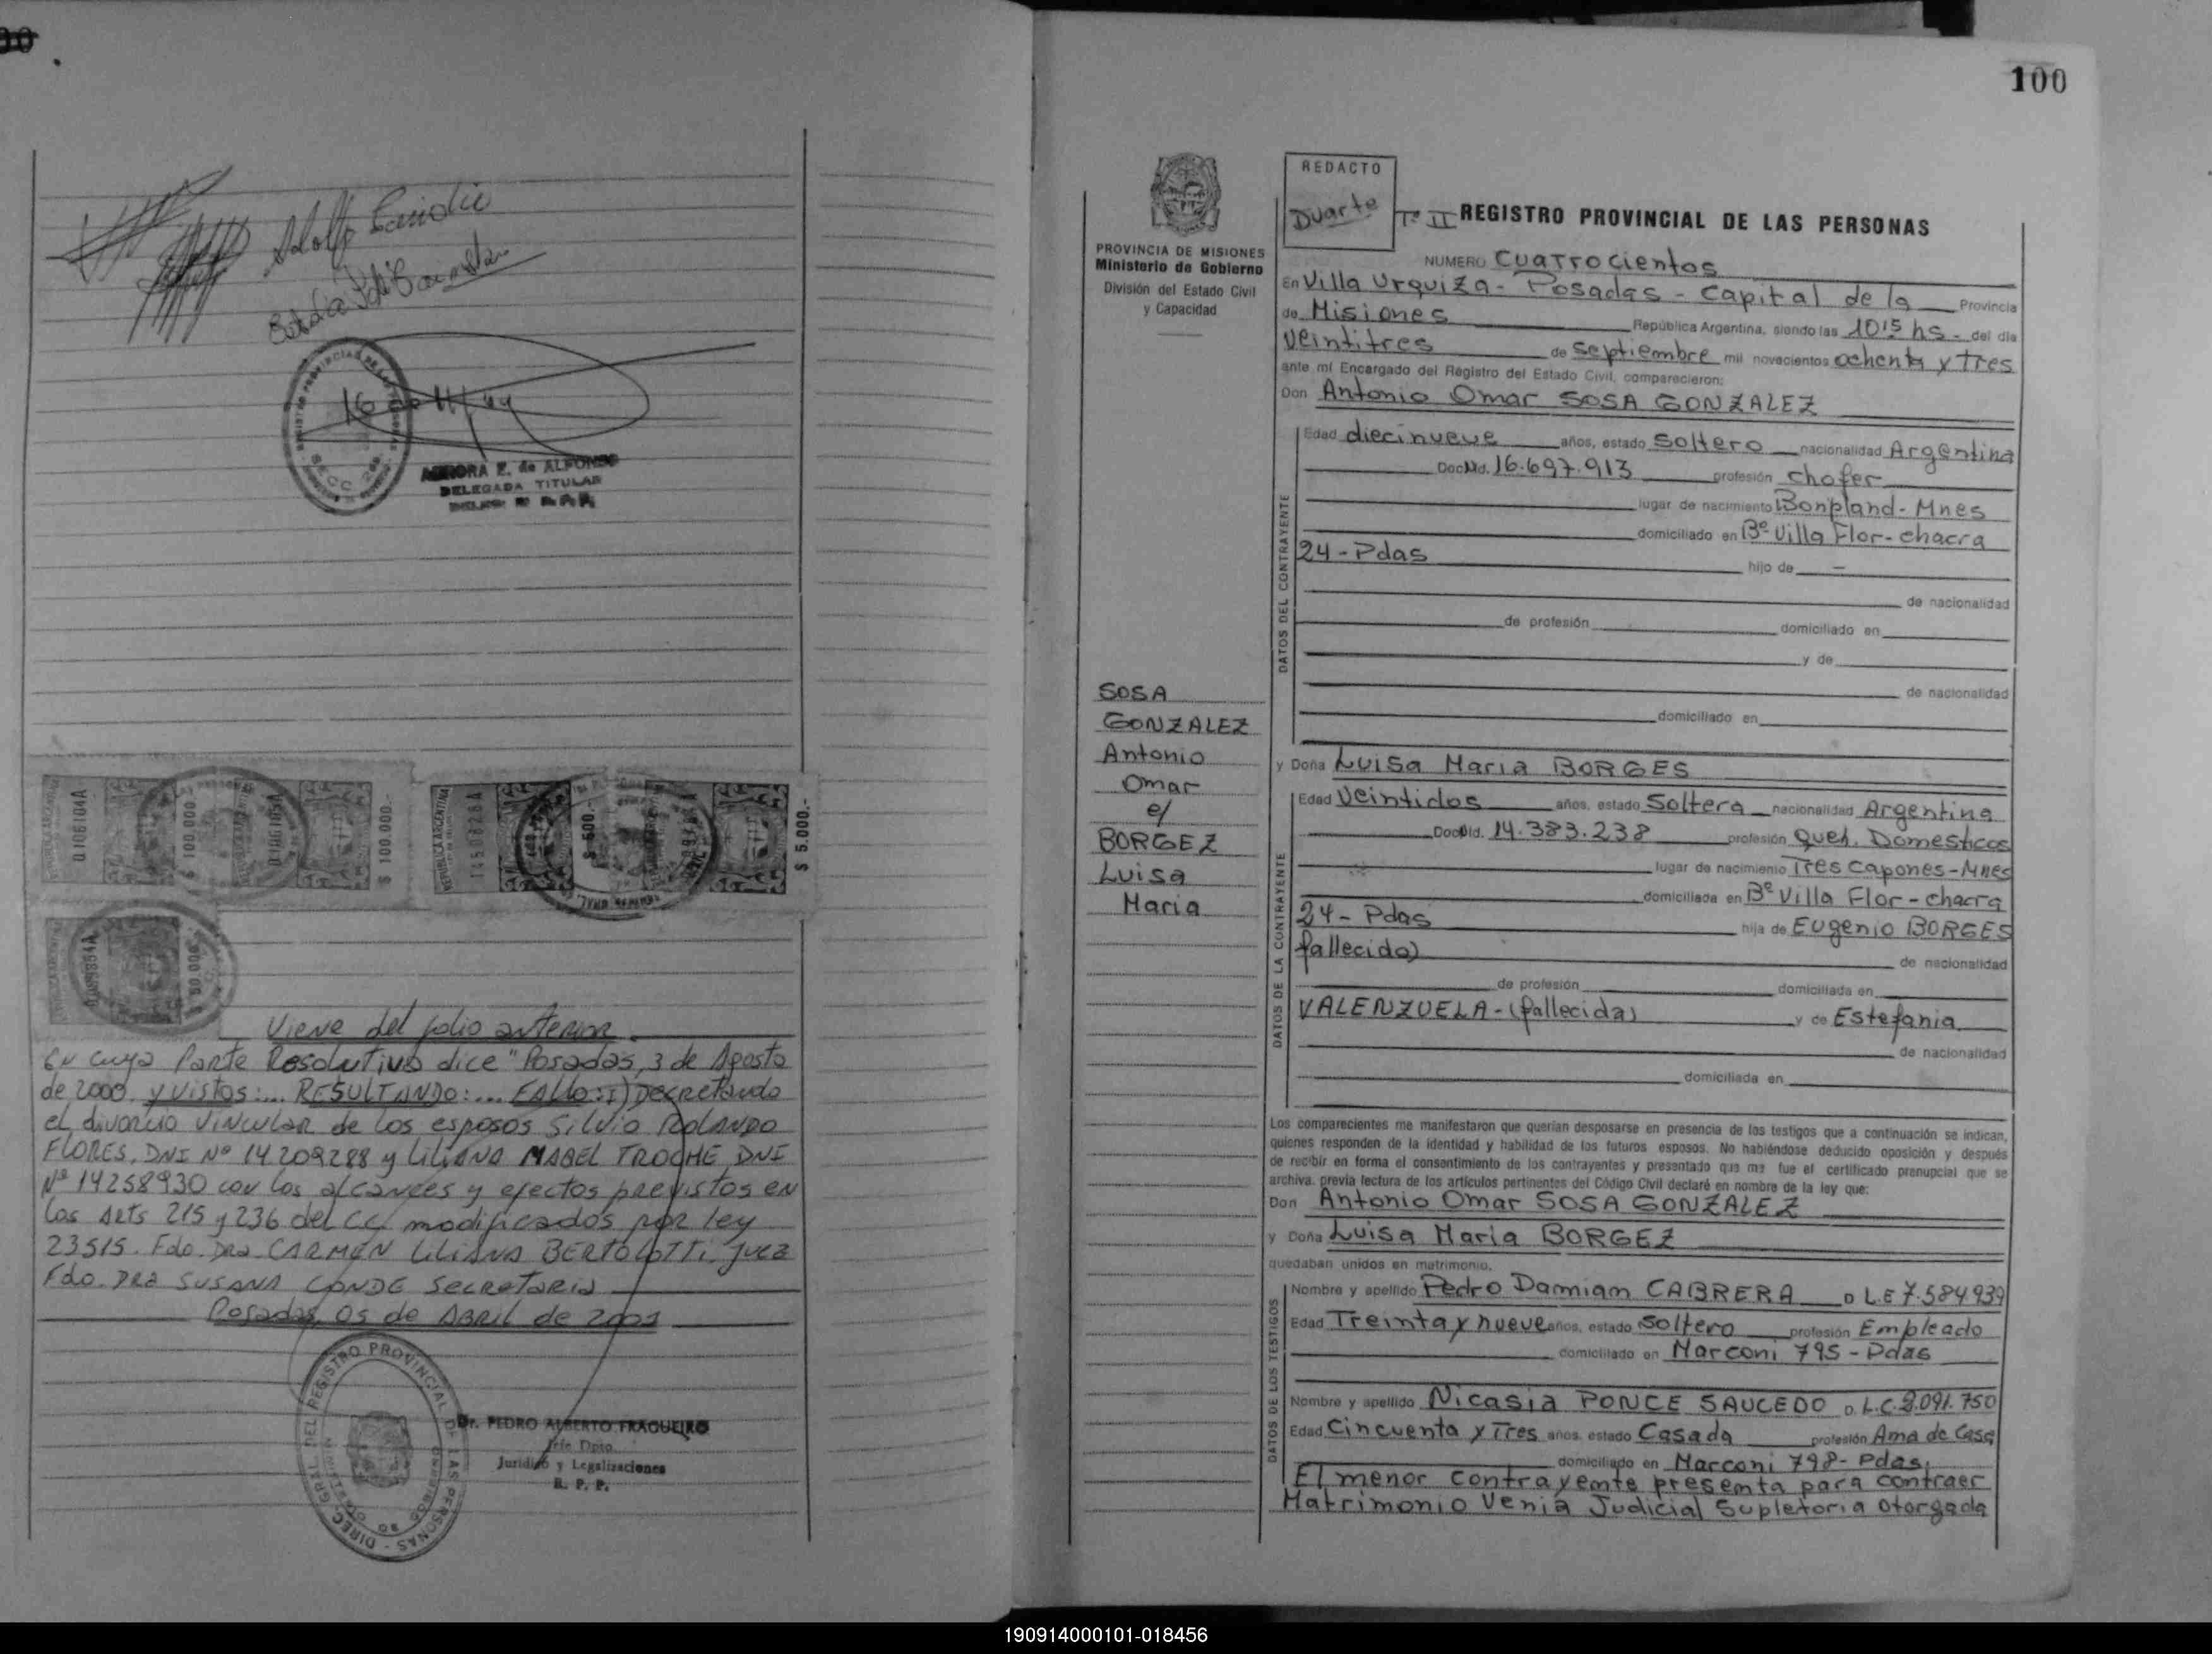 Adolfo
16
AURORA E. de ALFONSO
DELEGADA TITULAR
REPUBLICA ARGENTINA
0106104A
$ 100.000
$ 100.000.-
REPUBLICA ARGENTINA
$ 500.-
$ 5.000.-
Viene del folio anterior.
En cuya Parte Resolutiva dice "Posadas, 3 de Agosto
de 2000. y vistos:... RESULTANDO:... FALLO: I) Decretando
el divorcio vincular de los esposos Silvio ROLANDO
FLORES, DNI Nº 14209288 y LILIANA MABEL TROCHE, DNI
Nº 14258930 con los alcances y efectos previstos en
los Arts 215 y 236 del C.C. modificados por ley
23515. Fdo. Dra. CARMEN LILIANA BERTOLOTTI Juez
Fdo. Dra SUSANA CONDE Secretaria
Posadas, 05 de ABRIL de 2001
DIREC. GRAL. DEL REGISTRO PROVINCIAL DE LAS PERSONAS
Dr. PEDRO ALBERTO FRAGUEIRO
Jefe Dpto.
Jurídico y Legalizaciones
R. P. P.
100
PROVINCIA DE MISIONES
Ministerio de Gobierno
División del Estado Civil
y Capacidad
REDACTO
Duarte
Tº II REGISTRO PROVINCIAL DE LAS PERSONAS
NUMERO Cuatrocientos
En Villa Urquiza - Posadas - Capital de la Provincia
de Misiones República Argentina, siendo las 10:15 hs - del día
veintitres de septiembre mil novecientos ochenta y Tres
ante mí Encargado del Registro del Estado Civil, comparecieron:
Don Antonio Omar SOSA GONZALEZ
DATOS DEL CONTRAYENTE
Edad diecinueve años, estado soltero nacionalidad Argentina
Doc Nd. 16.697.913 profesión chofer
lugar de nacimiento Bonpland - Mnes
domiciliado en Bº Villa Flor - chacra
24 - Pdas hijo de —
de nacionalidad
de profesión domiciliado en
y de
de nacionalidad
domiciliado en
SOSA
GONZALEZ
Antonio
Omar
e/
BORGEZ
Luisa
Maria
y Doña Luisa Maria BORGES
DATOS DE LA CONTRAYENTE
Edad Veintidos años, estado Soltera nacionalidad Argentina
14.383.238 profesión Queh. Domesticos
lugar de nacimiento Tres Capones - Mnes
domiciliada en Bº Villa Flor - chacra
24 - Pdas hija de Eugenio BORGES
fallecido) de nacionalidad
de profesión domiciliada en
VALENZUELA - (fallecida) y de Estefania
de nacionalidad
domiciliada en
Los comparecientes me manifestaron que querían desposarse en presencia de los testigos que a continuación se indican,
quienes responden de la identidad y habilidad de los futuros esposos. No habiéndose deducido oposición y después
de recibir en forma el consentimiento de los contrayentes y presentado que me fue el certificado prenupcial que se
archiva, previa lectura de los artículos pertinentes del Código Civil declaré en nombre de la ley que:
Don Antonio Omar SOSA GONZALEZ
y Doña Luisa Maria BORGEZ
quedaban unidos en matrimonio.
DATOS DE LOS TESTIGOS
Nombre y apellido Pedro Damian CABRERA D L.E 7.584.939
Edad Treinta y nueve años, estado Soltero profesión Empleado
domiciliado en Marconi 795 - Pdas
Nombre y apellido Nicasia PONCE SAUCEDO D. L.C. 2.091.750
Edad Cincuenta y Tres años, estado Casada profesión Ama de Casa
domiciliado en Marconi 798 - Pdas,
El menor contrayente presenta para contraer
Matrimonio Venia Judicial Supletoria otorgada
190914000101-018456